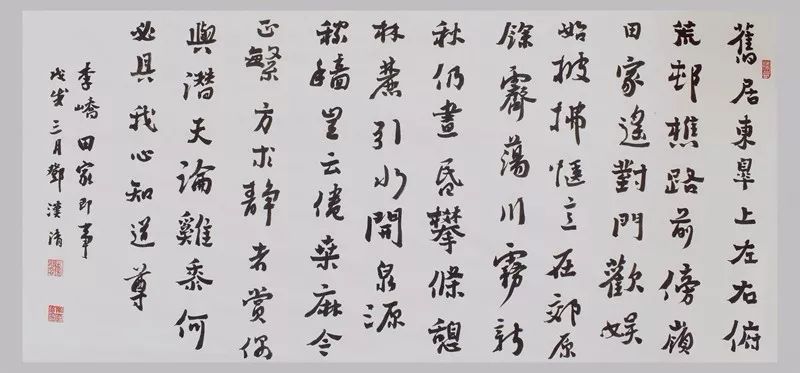 舊居東皋上左右俯
荒邨樵路前傍嶺
田家遙對門歡娛
始披拂愜意在郊原
餘霽蕩川霧新
秋仍晝昏攀條憩
林麓引水開泉源
稼穡豈云倦桑麻今
正繁方求靜者賞偶
與潛夫論雞黍何
必具我心知道尊
李嶠田家即事
戊戌三月鄧漢清